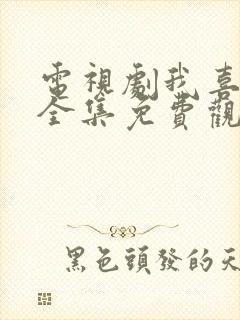 電視劇我喜
全集免費觀
黑色頭發的天